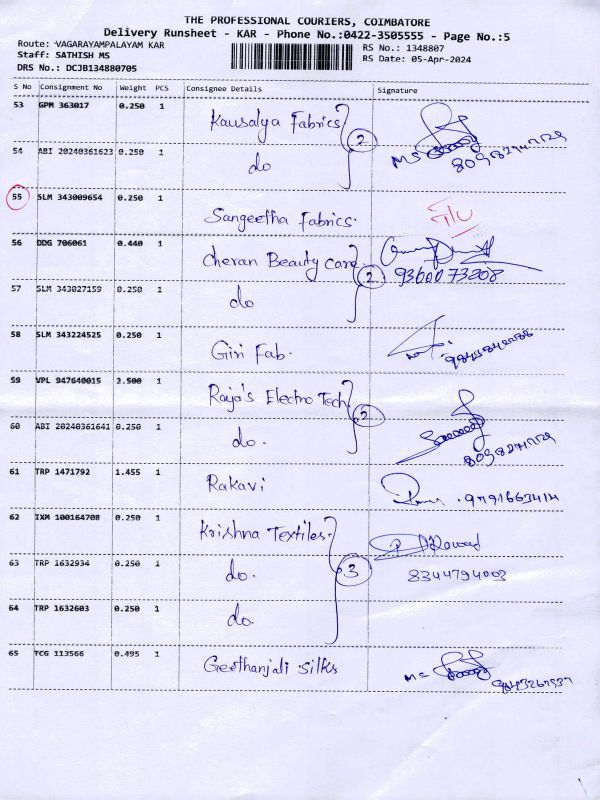 THE PROFESSIONAL COURIERS, COIMBATORE
Delivery Runsheet - KAR - Phone No.:0422-3505555 - Page No.:5
Route: VAGARAYAMPALAYAM KAR
RS No.: 1348807
Staff: SATHISH MS
RS Date: 05-Apr-2024
DRS No.: DCJB134880705
S No Consignment No Weight PCS Consignee Details Signature
53 GPM 363017 0.250 1 Kausalya Fabrics
2
54 ABI 20240361623 0.250 1 do
55 SLM 343009654 0.250 1 Sangeetha Fabrics.
56 DDG 706061 0.440 1 Cheran Beauty Care
2 9360073208
57 SLM 343027159 0.250 1 do
58 SLM 343224525 0.250 1 Giri Fab.
59 VPL 947640015 2.500 1 Raja's Electro Tech
2
60 ABI 20240361641 0.250 1 do.
61 TRP 1471792 1.455 1 Rakavi
62 IXM 100164708 0.250 1 Krishna Textiles.
63 TRP 1632934 0.250 1 do. 3 8344794003
64 TRP 1632603 0.250 1 do.
65 TCG 113566 0.495 1 Geethanjali Silks